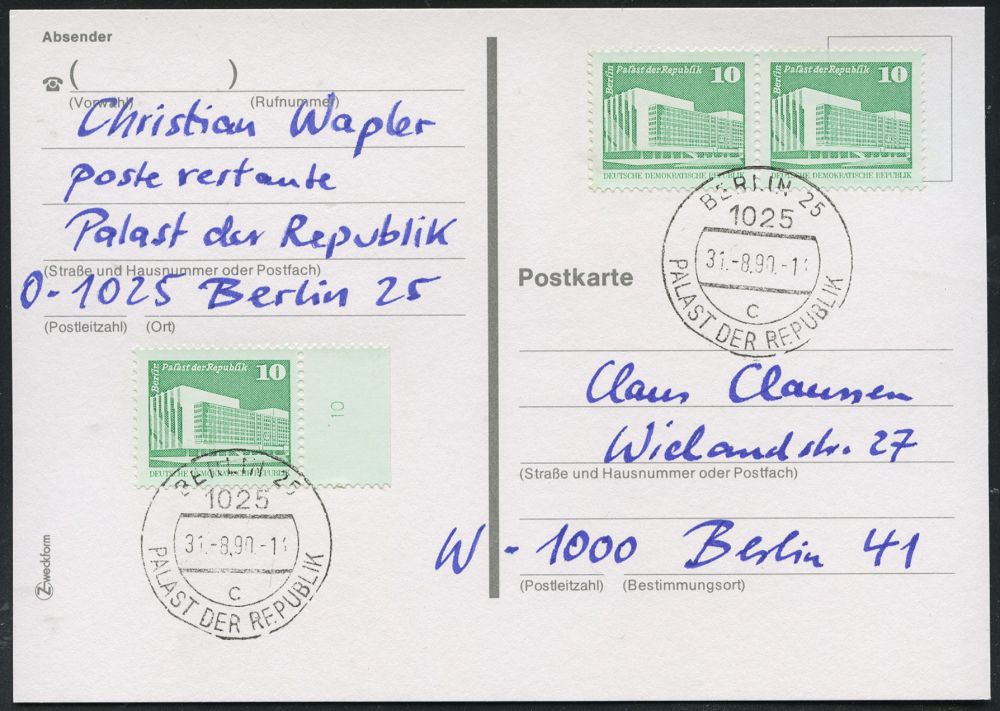 Absender
☎ (          )
(Vorwahl) (Rufnummer)
Christian Wapler
poste restante
Palast der Republik
(Straße und Hausnummer oder Postfach)
O-1025 Berlin 25
(Postleitzahl) (Ort)
Berlin Palast der Republik 10
DEUTSCHE DEMOKRATISCHE REPUBLIK
10
BERLIN 25
1025
31.-8.90.-1
C
PALAST DER REPUBLIK
Zweckform
Berlin Palast der Republik 10
DEUTSCHE DEMOKRATISCHE REPUBLIK
Berlin Palast der Republik 10
DEUTSCHE DEMOKRATISCHE REPUBLIK
BERLIN 25
1025
31.-8.90.-1
C
PALAST DER REPUBLIK
Postkarte
Claus Claussen
Wielandstr. 27
(Straße und Hausnummer oder Postfach)
W-1000 Berlin 41
(Postleitzahl) (Bestimmungsort)